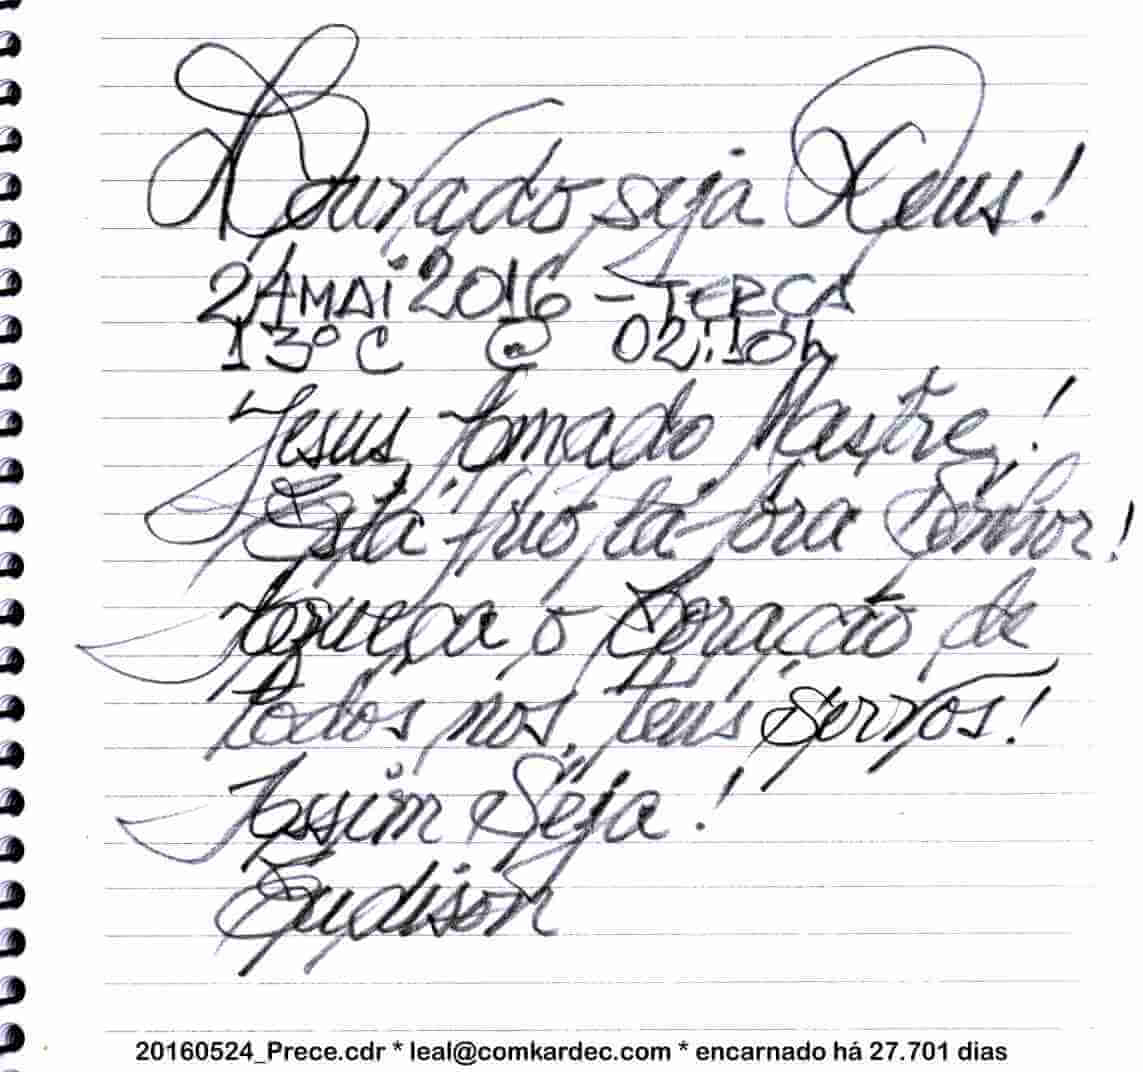 Louvado seja Deus!
24 MAI 2016 - TERÇA
13°C @ 02:10h
Jesus, Amado Mestre!
Está frio lá fora Senhor!
Aqueça o Coração de
todos nós, teus Servos!
Assim Seja!
Eudison
20160524_Prece.cdr * leal@comkardec.com * encarnado há 27.701 dias